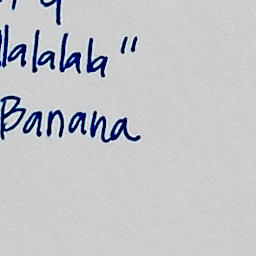 llalalab"
Banana